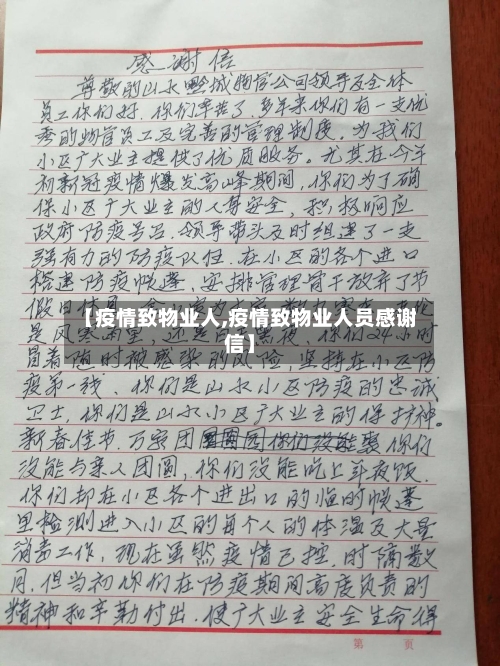 感谢信
尊敬的山水黔城物管公司领导及全体
员工你们好，你们辛苦了，多年来你们有一支优
秀的物管员工及完善的管理制度，为我们
小区广大业主提供了优质服务。尤其在今年
初新冠疫情爆发高峰期间，你们为了确
保小区广大业主的人身安全，积极响应
政府防疫号召，领导带头及时组建了一支
强有力的防疫队伍．在小区的各个进口
搭建防疫帐篷，安排管理骨干放弃了节
假日休息
【疫情致物业人,疫情致物业人员感谢
信】
是风寒雨里，还是 你们24小时
冒着随时被感染的风险，坚持在小区防
疫第一线、你们是山水小区防疫的忠诚
卫士．你们是山水小区广大业主的保护神。
新春佳节．万家团圆 你们没能聚 你们
没能与亲人团圆，你们没能吃上年夜饭．
你们却在小区各个进出口的临时帐篷
里检测进入小区的每个人的体温及大量
消毒工作，现在虽然疫情已控．时隔数
月．但当初你们在防疫期间高度负责的
精神和辛勤付出．使广大业主安全生命得
第 页